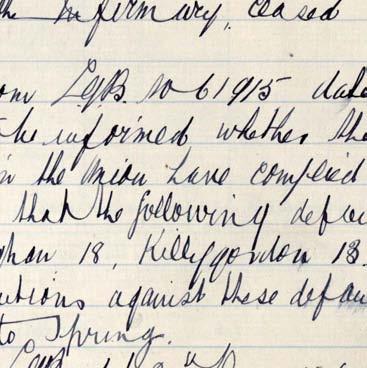 the Infirmary, ceased
om L.G.B. No 61915 date
to be informed whether the
in the Union have complied
that the following defau
ghan 18, Killygordon 13.
utions against these defau
to Spring.
LGB